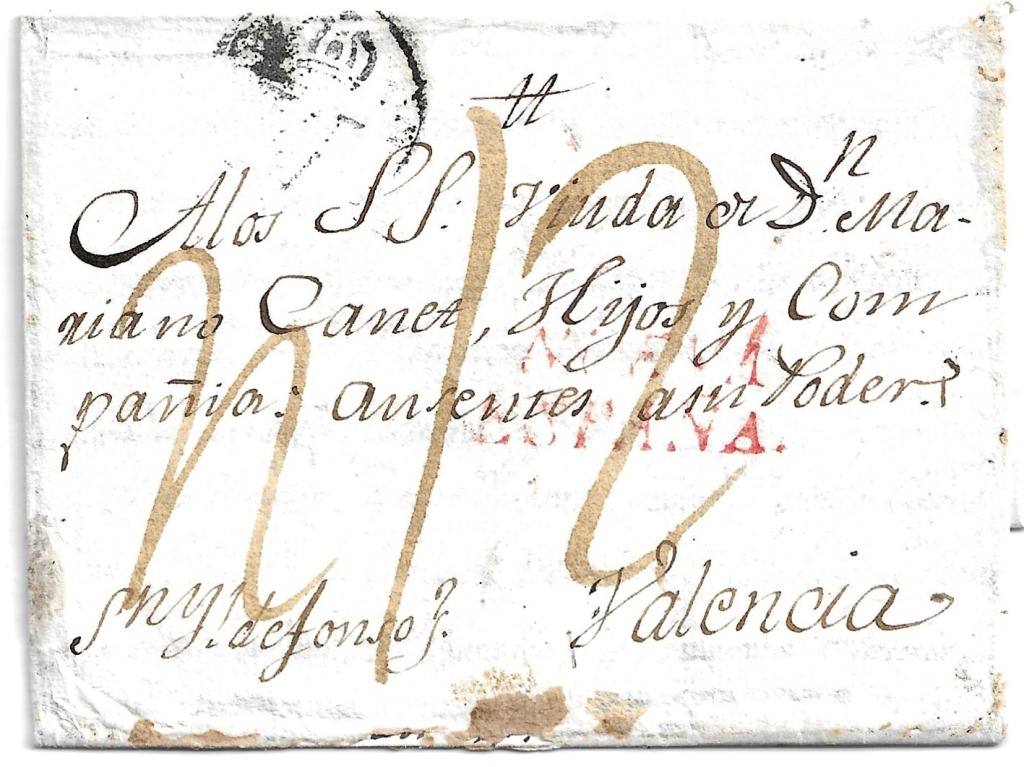 tt
A los SS. Viuda de Dn. Ma-
riano Canet, Hijos y Com
pañia: ausentes a su Poder.
NUEVA
ESPAÑA.
n 12
Sn Yldefonso
Valencia